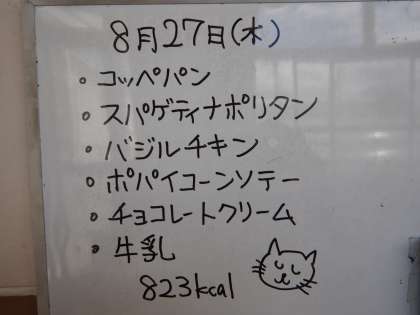 8月27日(木)
・コッペパン
・スパゲティナポリタン
・バジルチキン
・ポパイコーンソテー
・チョコレートクリーム
・牛乳
823kcal